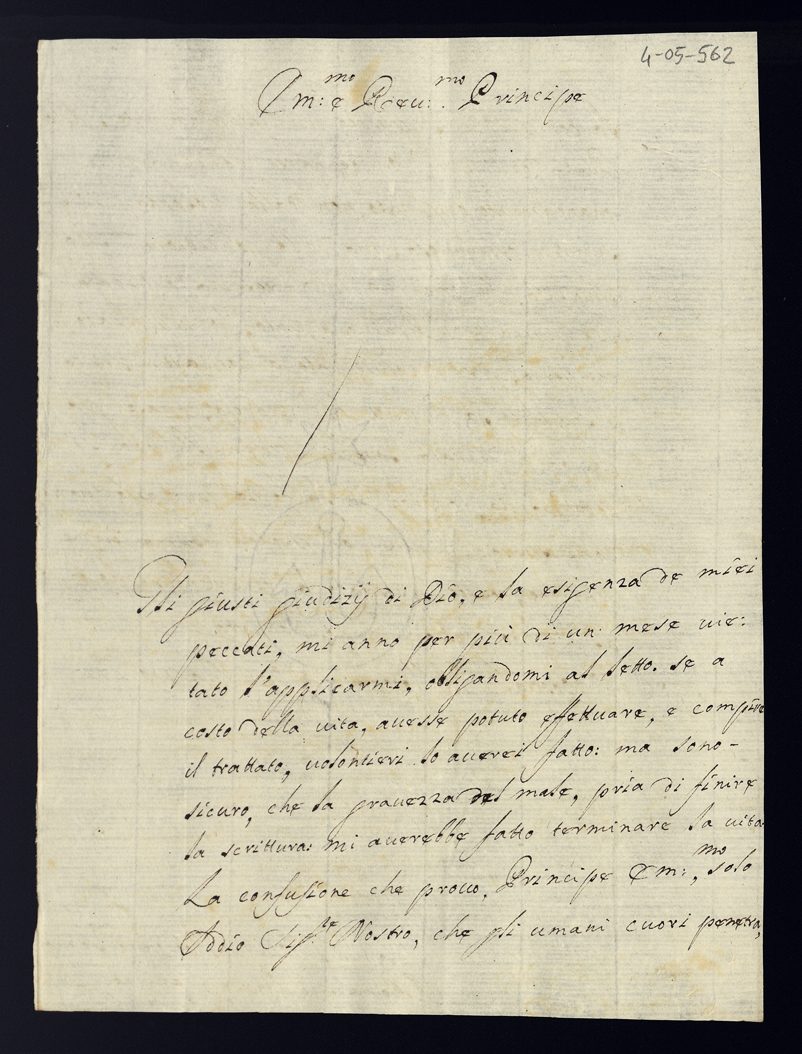 4-05-562
Em:mo e Reu:mo Principe
Gli giusti giudizij di Dio, e la esigenza de miei
peccati, mi anno per più di un mese vie:
tato l'applicarmi, obligandomi al letto. se a
costo della vita, auesse potuto effettuare, e compire
il trattato, volontieri lo auerei fatto: ma sono -
sicuro, che la grauezza del male, pria di finire
la scrittura: mi auerebbe fatto terminare la vita
La confusione che prouo, Principe Em:mo, solo
Iddio Sig:re Nostro, che gli umani cuori penetra,